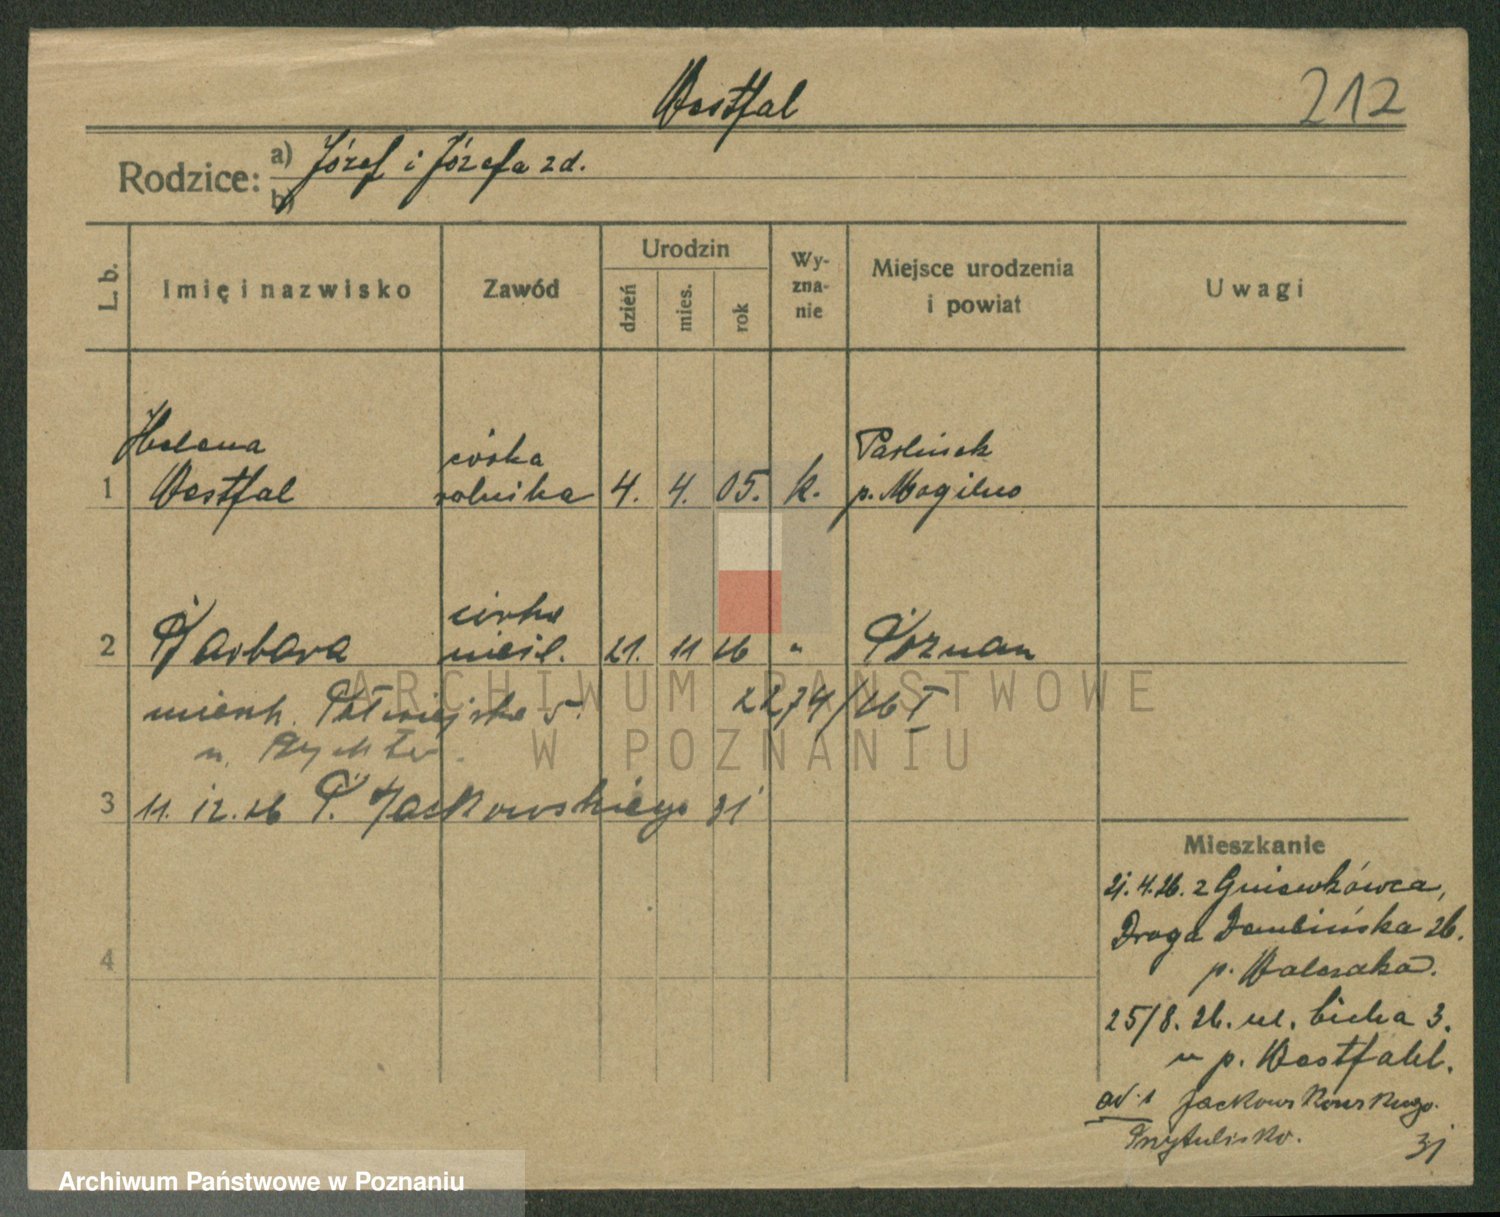 212
Westfal
Rodzice: a) Józef i Józefa zd.
b)
L. b.
Imię i nazwisko
Zawód
Urodzin
dzień
mies.
rok
Wy-
zna-
nie
Miejsce urodzenia
i powiat
Uwagi
Helena
Westfal
córka
rolnika
1
4. 4. 05. k.
Parlinek
p. Mogilno
2 Barbara
córka
nieśl.
21. 11 26 "
Poznan
mieszk. 5. 2274/26 I
u
3 11. 12. 26 P. Jackowskiego 31
4
Mieszkanie
21. 4. 26. z Gniewkówca,
Droga Dembińska 26.
p. Walczaka.
25/8. 26. ul. Cicha 3.
u p. Westfahl.
ad 1
Przytulisko. 31
ARCHIWUM PAŃSTWOWE
W POZNANIU
Archiwum Państwowe w Poznaniu